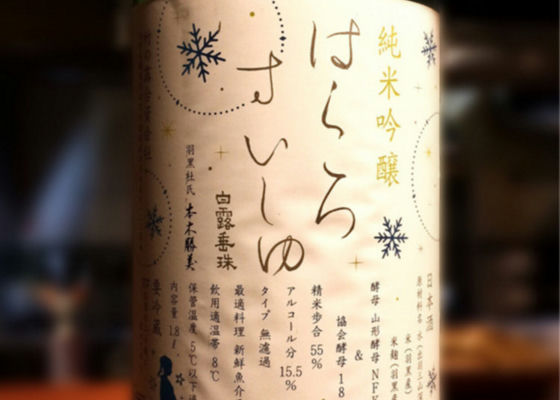 純米吟醸
はくろ
すいしゅ
白露垂珠
羽黒杜氏 本木勝美
日本酒
原材料名 水(出羽三山
米(羽黒産
米麹(羽黒産
酵母 山形酵母 NFK
&
協会酵母 18
精米歩合 55%
アルコール分 15.5%
タイプ 無濾過
最適料理 新鮮魚介
飲用適温帯 8℃
保管温度 5℃以下
内容量 1.8ℓ
要冷蔵